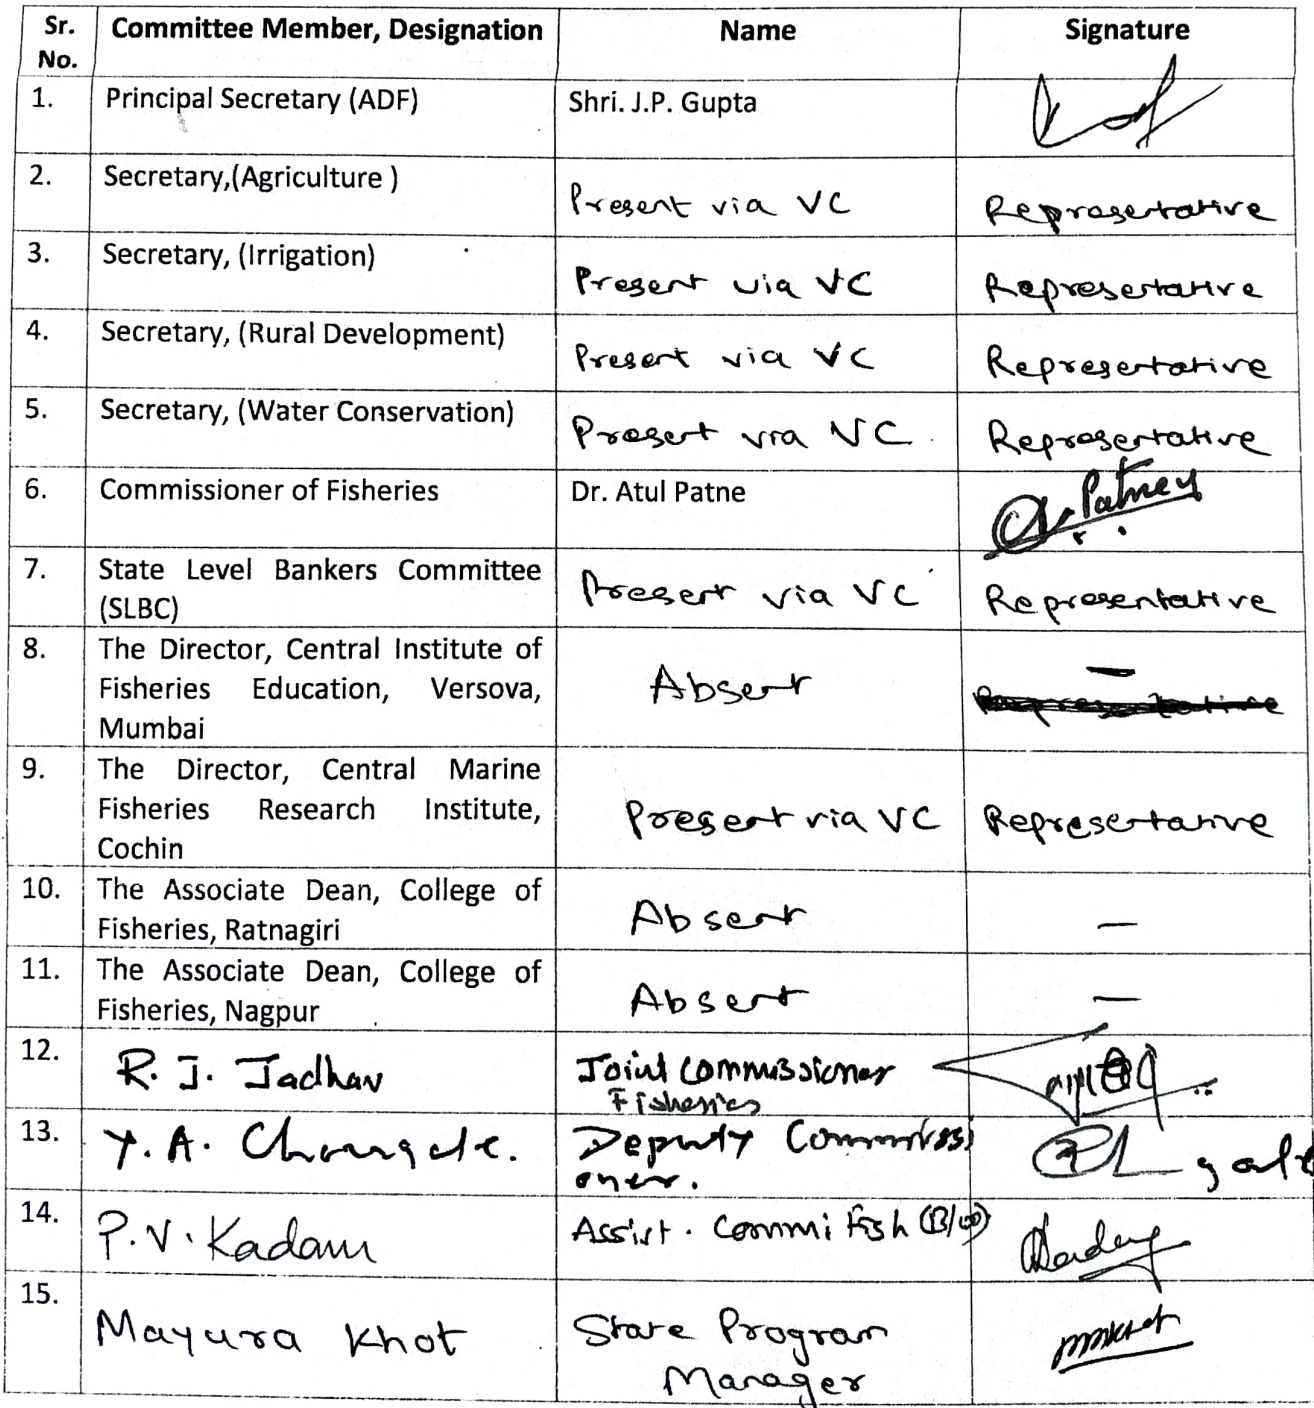 Sr. No. Committee Member, Designation Name Signature
1. Principal Secretary (ADF) Shri. J.P. Gupta
2. Secretary,(Agriculture ) Present via VC Representative
3. Secretary, (Irrigation) Present via VC Representative
4. Secretary, (Rural Development) Present via VC Representative
5. Secretary, (Water Conservation) Present via VC Representative
6. Commissioner of Fisheries Dr. Atul Patne
7. State Level Bankers Committee Present via VC Representative
(SLBC)
8. The Director, Central Institute of
Fisheries Education, Versova, Absent —
Mumbai
9. The Director, Central Marine
Fisheries Research Institute, Present via VC Representative
Cochin
10. The Associate Dean, College of
Fisheries, Ratnagiri Absent —
11. The Associate Dean, College of
Fisheries, Nagpur Absent —
12. R. J. Jadhav Joint Commissioner
Fisheries
13. Y. A. Chougale. Deputy Commissi
oner.
14. P.V. Kadam Assist. Commi Fish
15. Mayura Khot State Program
Manager